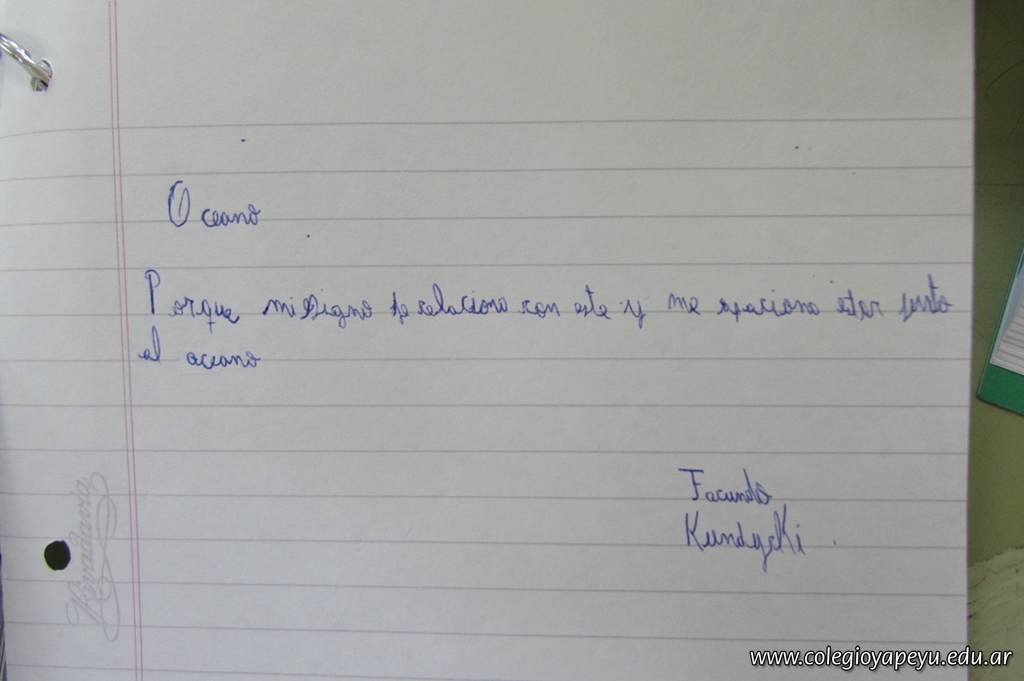 Oceano
Porque mi signo se relaciona con este y me apaciona estar junto
al oceano
Facundo
Kundycki
Rivadavia
www.colegioyapeyu.edu.ar